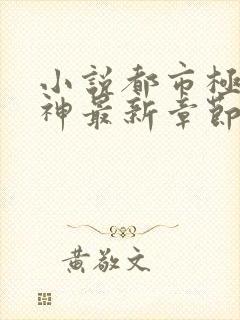 小説都市極
神最新章節
黃敬文